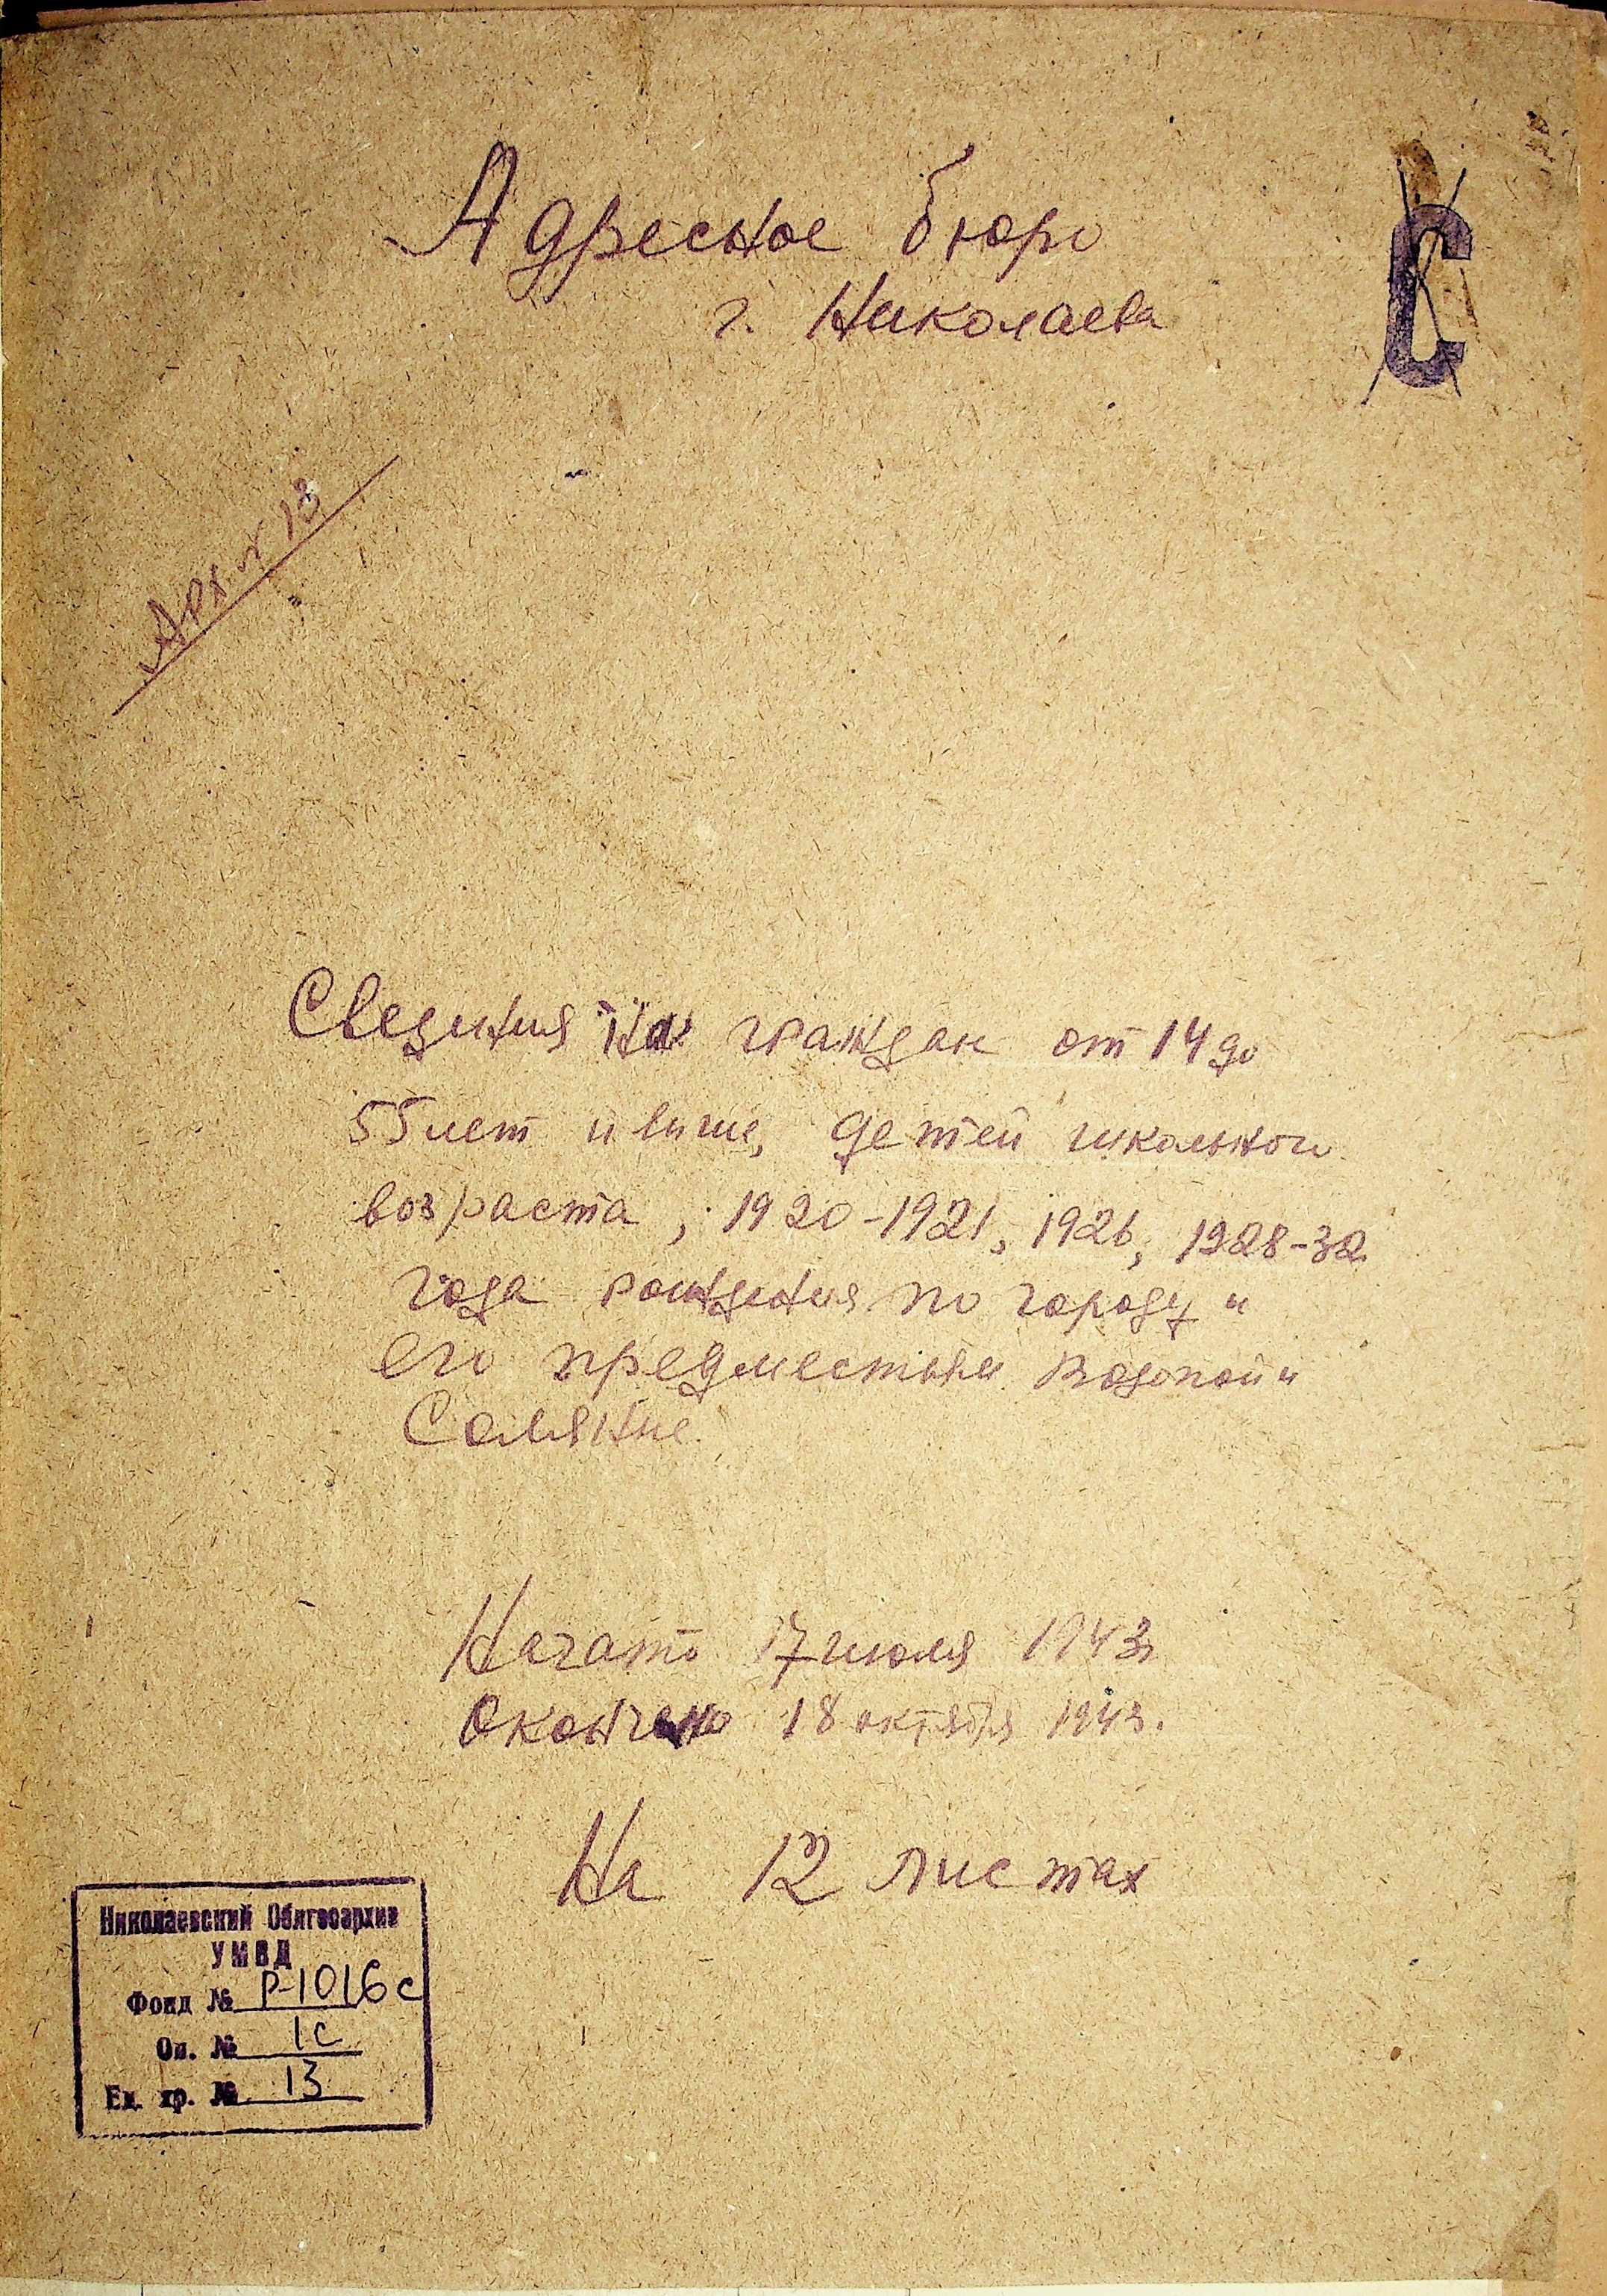 Адресное бюро
г. Николаева
С
Арх № 13
Сведения на граждан от 14 до
55 лет и выше, детей школьного
возраста, 1920-1921, 1926, 1928-32
года рождения по городу и
его предместьям Водопой и
Соляные.
Начато 17 июля 1943г
Окончено 18 октября 1943.
На 12 листах
Николаевский Облгосархив
УМВД
Фонд № Р-1016с
Оп. № 1с
Ед. хр. № 13